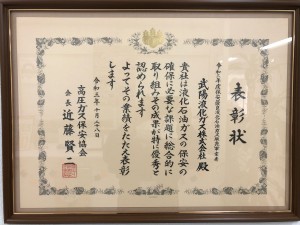 表彰状
武陽液化ガス株式会社殿
貴社は液化石油ガスの保安の
確保に必要な課題に総合的に
取り組みその成果が特に優秀と
認められます
よってその業績をたたえ表彰
します
令和三年十月二八日
高圧ガス保安協会
会長 近藤賢二